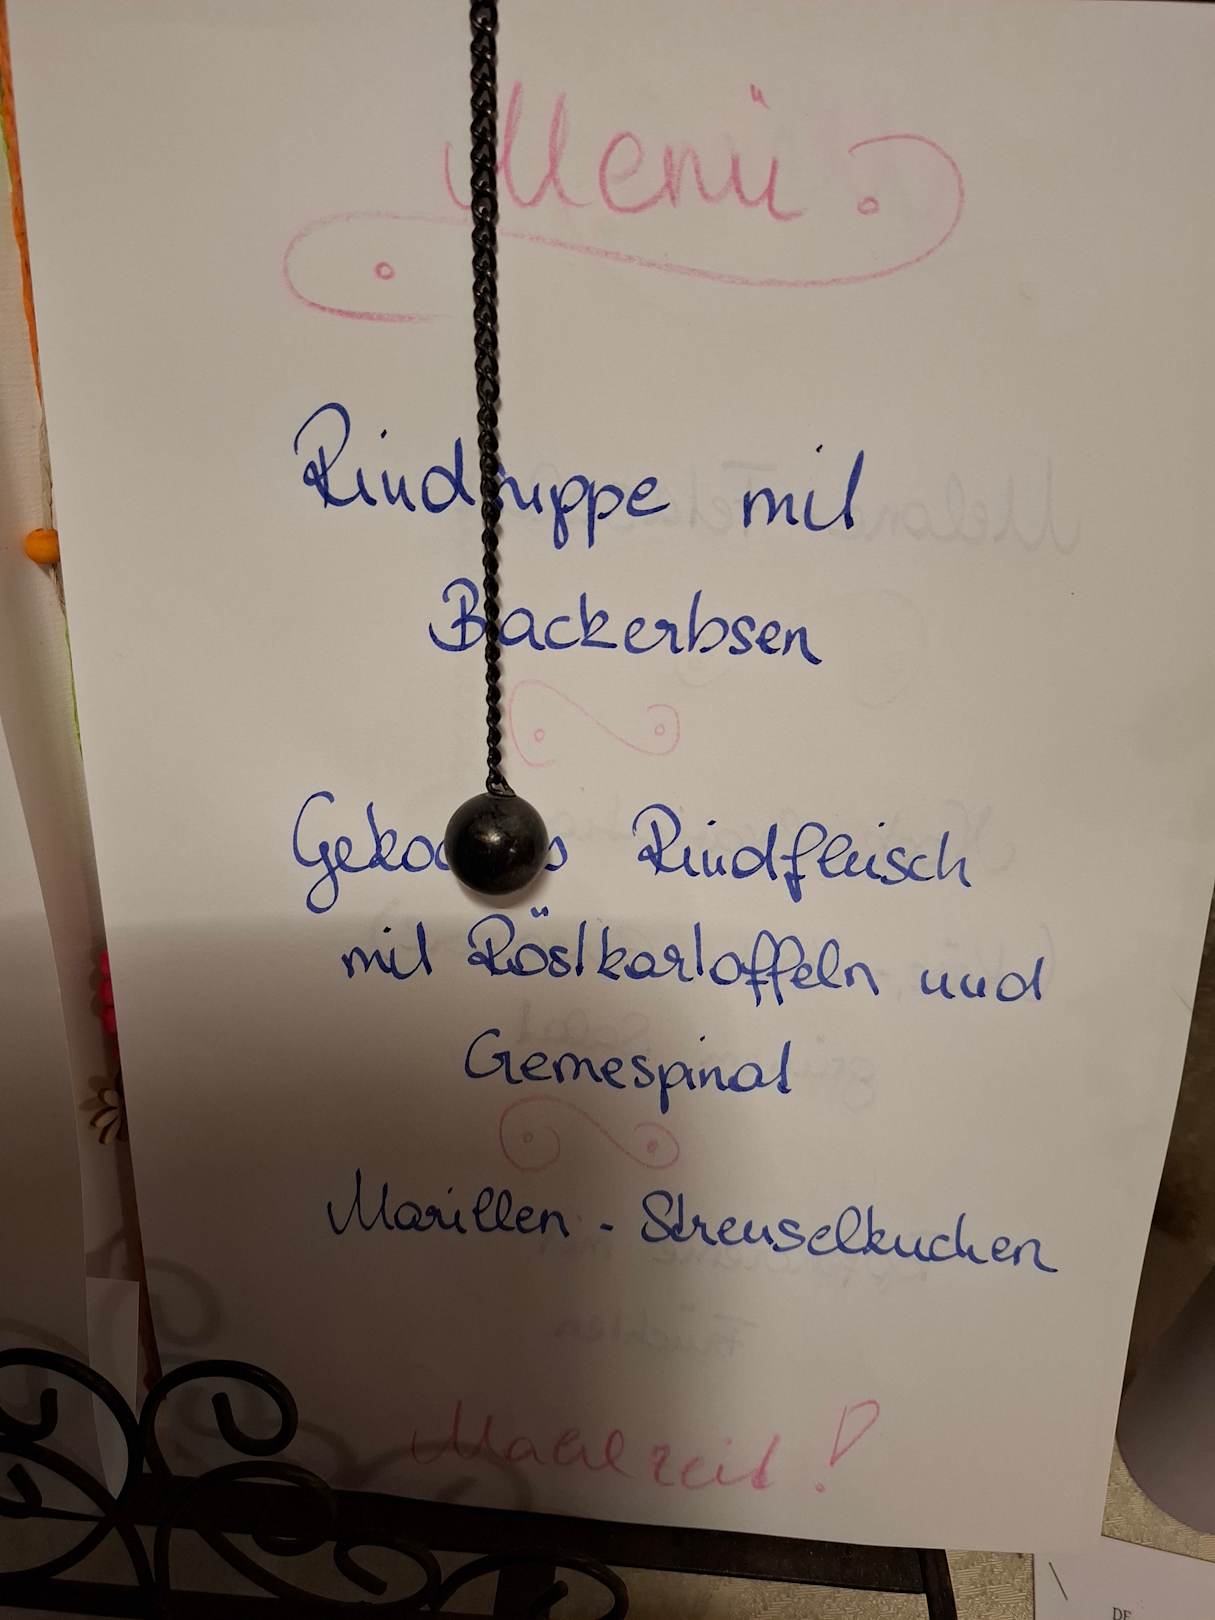 Menü
Rindsuppe mit
Backerbsen
Gekochtes Rindfleisch
mit Röstkartoffeln und
Cremespinat
Marillen - Streuselkuchen
Mahlzeit!
DE